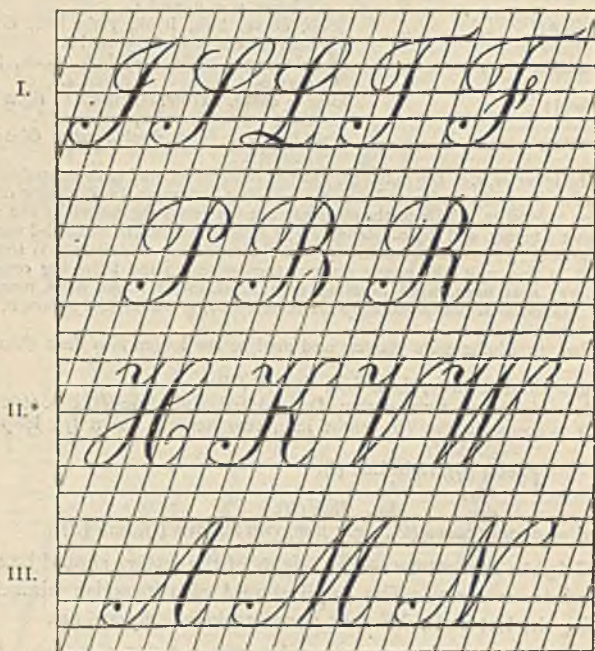 I. I S L T F
P B R
II.* H K V W
III. A M N